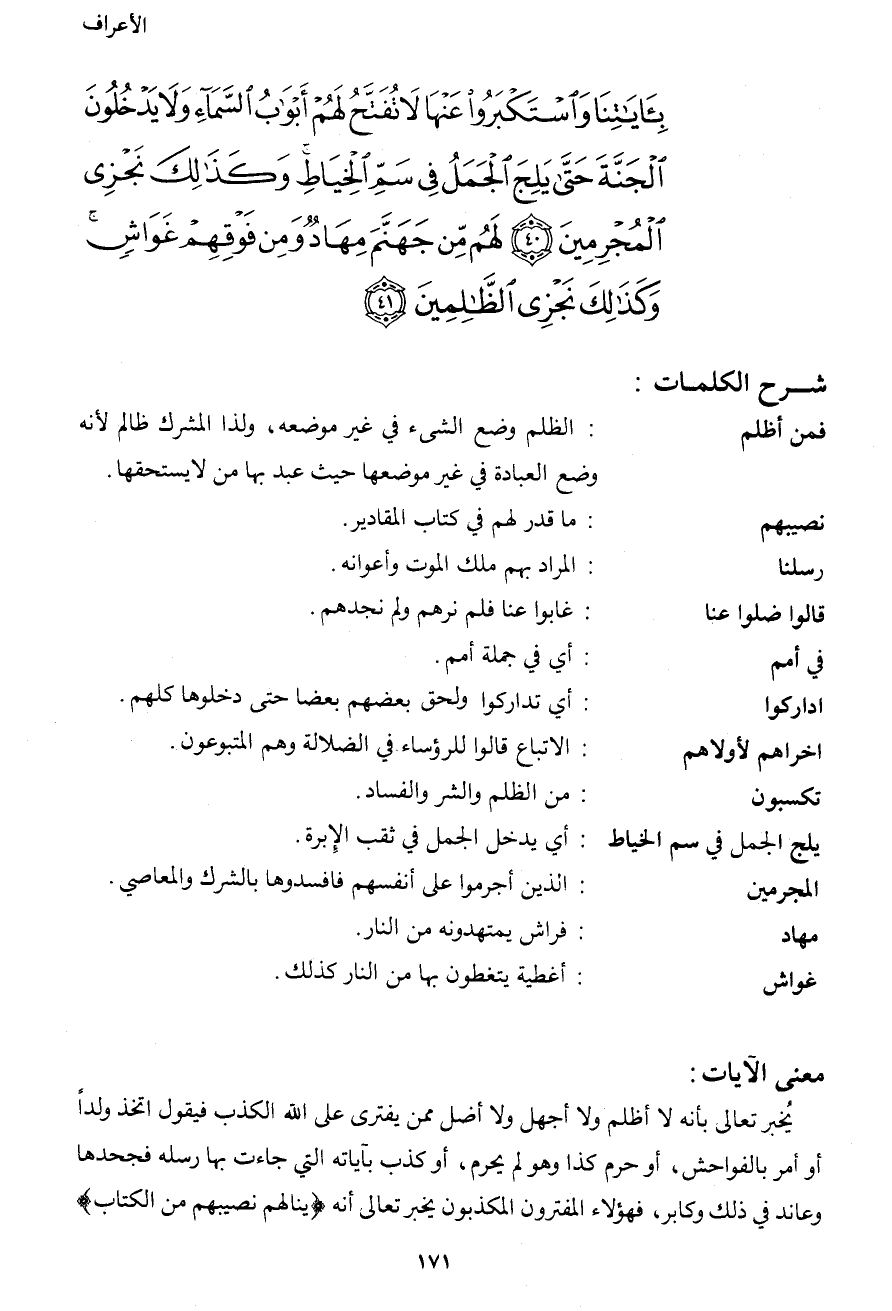 الأعراف
بِـَٔايَـٰتِنَا وَٱسۡتَكۡبَرُواْ عَنۡهَا لَا تُفَتَّحُ لَهُمۡ أَبۡوَٰبُ ٱلسَّمَآءِ وَلَا يَدۡخُلُونَ
ٱلۡجَنَّةَ حَتَّىٰ يَلِجَ ٱلۡجَمَلُ فِى سَمِّ ٱلۡخِيَاطِۚ وَكَذَٰلِكَ نَجۡزِى
ٱلۡمُجۡرِمِينَ ٤٠ لَهُم مِّن جَهَنَّمَ مِهَادٌ وَمِن فَوۡقِهِمۡ غَوَاشٍۚ
وَكَذَٰلِكَ نَجۡزِى ٱلظَّـٰلِمِينَ ٤١
شرح الكلمات :
فمن أظلم : الظلم وضع الشىء في غير موضعه، ولذا المشرك ظالم لأنه
وضع العبادة في غير موضعها حيث عبد بها من لايستحقها.
نصيبهم : ما قدر لهم في كتاب المقادير.
رسلنا : المراد بهم ملك الموت وأعوانه.
قالوا ضلوا عنا : غابوا عنا فلم نرهم ولم نجدهم.
في أمم : أي في جملة أمم.
اداركوا : أي تداركوا ولحق بعضهم بعضا حتى دخلوها كلهم.
اخراهم لأولاهم : الاتباع قالوا للرؤساء في الضلالة وهم المتبوعون.
تكسبون : من الظلم والشر والفساد.
يلج الجمل في سم الخياط : أي يدخل الجمل في ثقب الإبرة.
المجرمين : الذين أجرموا على أنفسهم فافسدوها بالشرك والمعاصي.
مهاد : فراش يمتهدونه من النار.
غواش : أغطية يتغطون بها من النار كذلك.
معنى الآيات :
يُخبر تعالى بأنه لا أظلم ولا أجهل ولا أضل ممن يفترى على الله الكذب فيقول اتخذ ولداً
أو أمر بالفواحش، أو حرم كذا وهو لم يحرم، أو كذب بآياته التي جاءت بها رسله فجحدها
وعاند في ذلك وكابر، فهؤلاء المفترون المكذبون يخبر تعالى أنه ﴿ينالهم نصيبهم من الكتاب﴾
١٧١